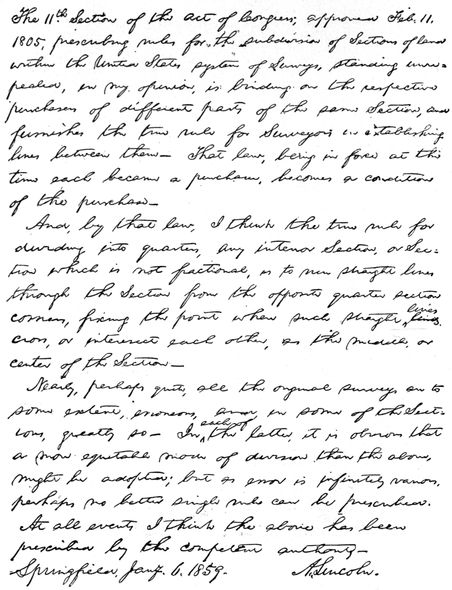 The 11th Section of the Act of Congress, approved Feb. 11.
1805, prescribing rules for the subdivision of Sections of land
within the United States system of Surveys, standing unre-
pealed, in my opinion, is binding on the respective
purchasers of different parts of the same Section, and
furnishes the true rule for Surveyors in establishing
lines between them— That law, being in force at the
time each became a purchaser, becomes a condition
of the purchase—
And, by that law, I think the true rule for
dividing into quarters, any interior Section, or Sec-
tion which is not fractional, is to run straight lines
through the Section from the opposite quarter section
corners, fixing the point where such straight lines
cross, or intersect each other, as the middle, or
center of the Section—
Nearly, perhaps quite, all the original surveys are to
some extent, erroneous, and in some of the Sect-
ions, greatly so— In each of the latter, it is obvious that
a more equitable mode of division than the above,
might be adopted; but as error is infinitely various,
perhaps no better single rule can be prescribed.
At all events I think the above has been
prescribed by the competent authority—
Springfield, Jany. 6. 1859. A. Lincoln.